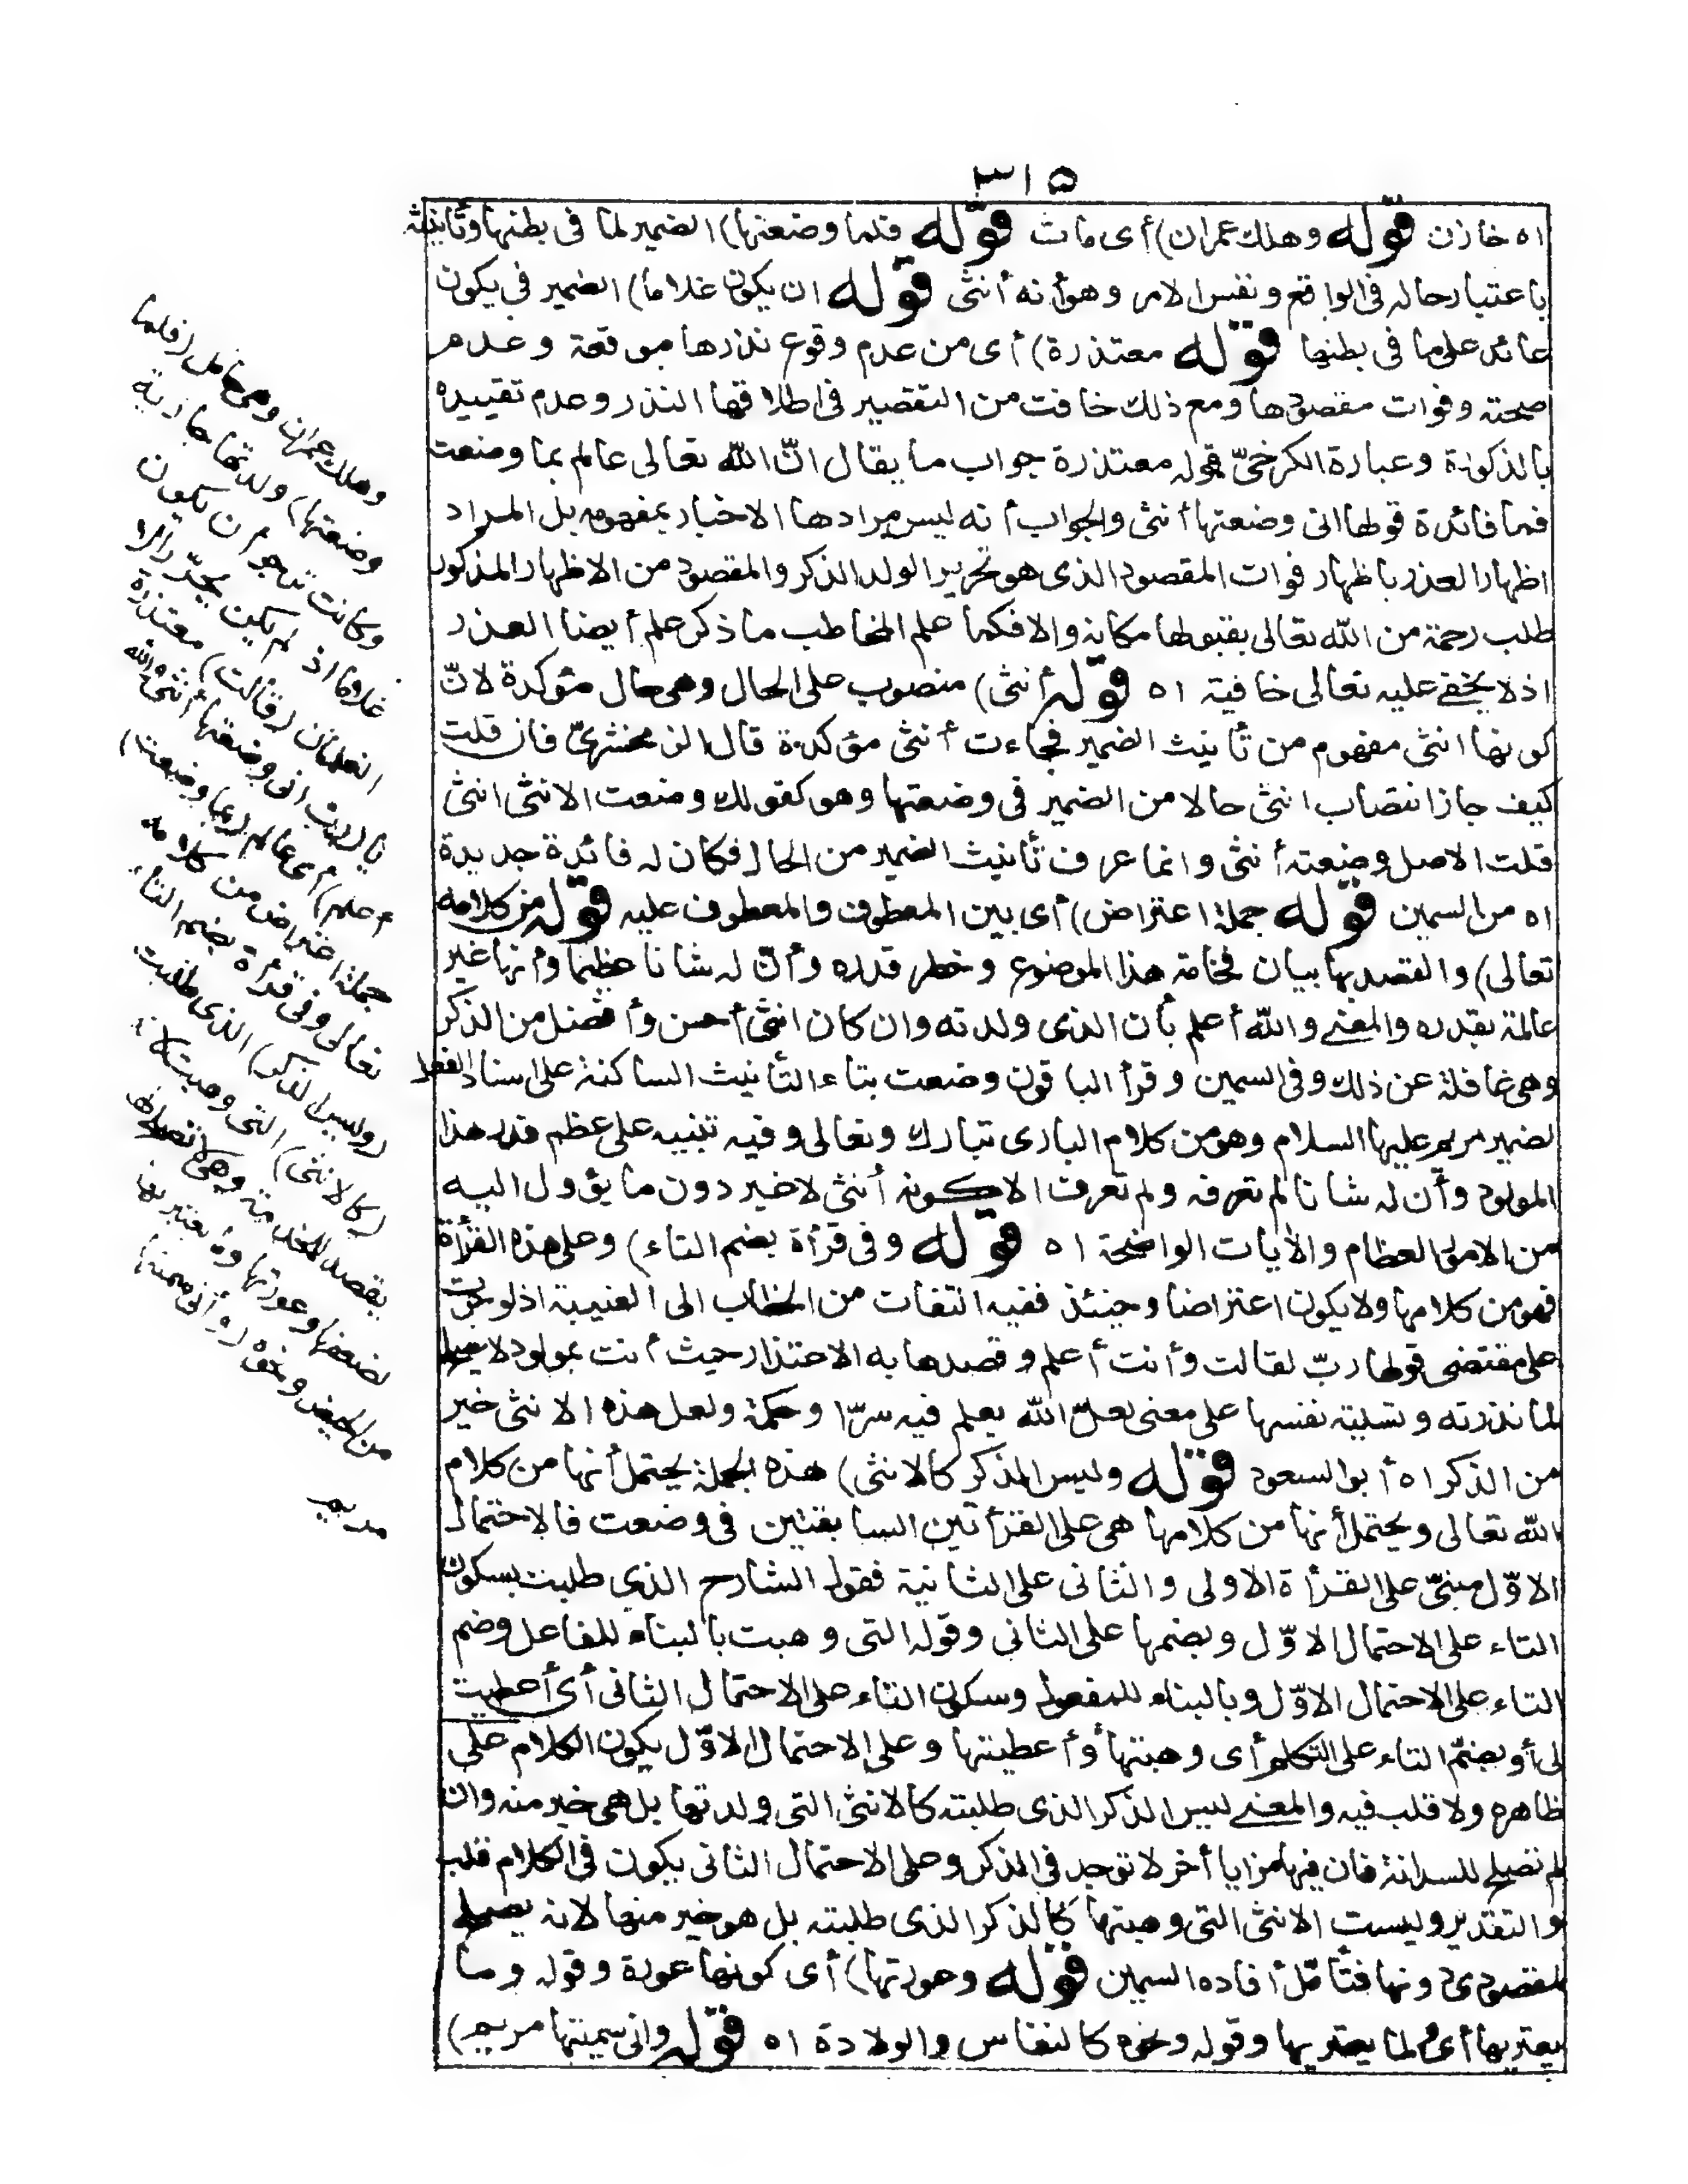 ٣١٥
اه خازن قوله وهلك عمران) أى مات قوله فلما وضعتها) الضمير لما فى بطنها وتأنيثه
باعتبار حاله فى الواقع ونفس الامر وهو أنه أنثى قوله ان يكون غلاما) الضمير فى يكون
عائد على ما فى بطنها قوله معتذرة) أى من عدم وقوع نذرها موقعة وعدم
صحته وفوات مقصودها ومع ذلك خافت من التقصير فى اطلاقها النذر وعدم تقييده
بالذكورة وعبارة الكرخىّ قوله معتذرة جواب ما يقال انّ الله تعالى عالم بما وضعت
فما فائدة قولها انى وضعتها أنثى والجواب أنه ليس مرادها الاخبار بمفهومه بل المراد
اظهار العذر باظهار فوات المقصود الذى هو تحرير الولد الذكر والمقصود من الاظهار المذكور
طلب رحمة من الله تعالى بقبولها مكانه والا فكما علم المخاطب ما ذكر علم أيضا العذر
اذ لا يخفى عليه تعالى خافية اه قوله أنثى) منصوب على الحال وهى حال مؤكدة لانّ
كونها انثى مفهوم من تأنيث الضمير فجاءت أنثى مؤكدة قال الزمخشرىّ فان قلت
كيف جاز انتصاب انثى حالا من الضمير فى وضعتها وهو كقولك وضعت الانثى انثى
قلت الاصل وضعته أنثى وانما عرف تأنيث الضمير من الحال فكان له فائدة جديدة
اه من السمين قوله جملة اعتراض) أى بين المعطوف والمعطوف عليه قوله من كلامه
تعالى) والقصد بها بيان فخامة هذا الموضوع وخطر قدره وأنّ له شانا عظيما وأنها غير
عالمة بقدره والمعنى والله أعلم بأن الذى ولدته وان كان انثى أحسن وأفضل من الذكر
وهى غافلة عن ذلك وفى السمين وقرأ الباقون وضعت بتاء التأنيث الساكنة على اسناد الفعل
لضمير مريم عليها السلام وهو من كلام البارى تبارك وتعالى وفيه تنبيه على عظم قدر هذا
المولود وأن له شانا لم تعرفه ولم تعرف الا كونه أنثى لا خير دون ما يؤول اليه
من الامور العظام والآيات الواضحة اه قوله وفى قرأة بضم التاء) وعلى هذه القرأة
فهو من كلامها ولا يكون اعتراضا وحينئذ ففيه التفات من الخطاب الى الغيبة اذ لو جرت
على مقتضى قولها ربّ لقالت وأنت أعلم وقصدها به الاعتذار حيث أنت بمولود لا يصلح
لما نذرته وتسلية نفسها على معنى لعلّ الله يعلم فيه سرّا وحكمة ولعل هذه الانثى خير
من الذكر اه أبو السعود قوله وليس الذكر كالانثى) هذه الجملة يحتمل أنها من كلام
الله تعالى ويحتمل أنها من كلامها هى على القرأتين السابقتين فى وضعت فالاحتمال
الاوّل مبنىّ على القرأة الاولى والثانى على الثانية فقول الشارح الذى طلبت بسكون
التاء على الاحتمال الاوّل وبضمها على الثانى وقوله التى وهبت بالبناء للفاعل وضم
التاء على الاحتمال الاوّل وبالبناء للمفعول وسكون التاء على الاحتمال الثانى أى أعطيت
لى أو بضمّ التاء على التكلم أى وهبتها أو أعطيتها وعلى الاحتمال الاوّل يكون الكلام على
ظاهره ولا قلب فيه والمعنى ليس الذكر الذى طلبته كالانثى التى ولدتها بل هى خير منه وان
لم تصلح للسدانة فان فيها مزايا أخر لا توجد فى الذكر وعلى الاحتمال الثانى يكون فى الكلام قلب
والتقدير وليست الانثى التى وهبتها كالذكر الذى طلبته بل هو خير منها لانه يصلح
لمقصودى دونها فتأمّل أفاده السمين قوله وعورتها) أى كونها عورة وقوله وما
يعتريها أى ولما يعتريها وقوله ونحوه كالنفاس والولادة اه قوله وانى سميتها مريم)
وهلك عمران وهى حامل (فلما
وضعتها) ولدتها جارية
وكانت ترجو أن يكون
غلاما اذ لم يكن يحرّر الا
الغلمان (قالت) معتذرة
يا (رب انى وضعتها أنثى والله
أعلم) أى عالم (بما وضعت)
جملة اعتراض من كلامه
تعالى وفى قرأة بضم التاء
(وليس الذكر) الذى طلبت
(كالانثى) التى وهبت لانه
يقصد للخدمة وهى لا تصلح لها
لضعفها وعورتها وما يعتريها
من الحيض ونحوه (وانى سميتها
مريم